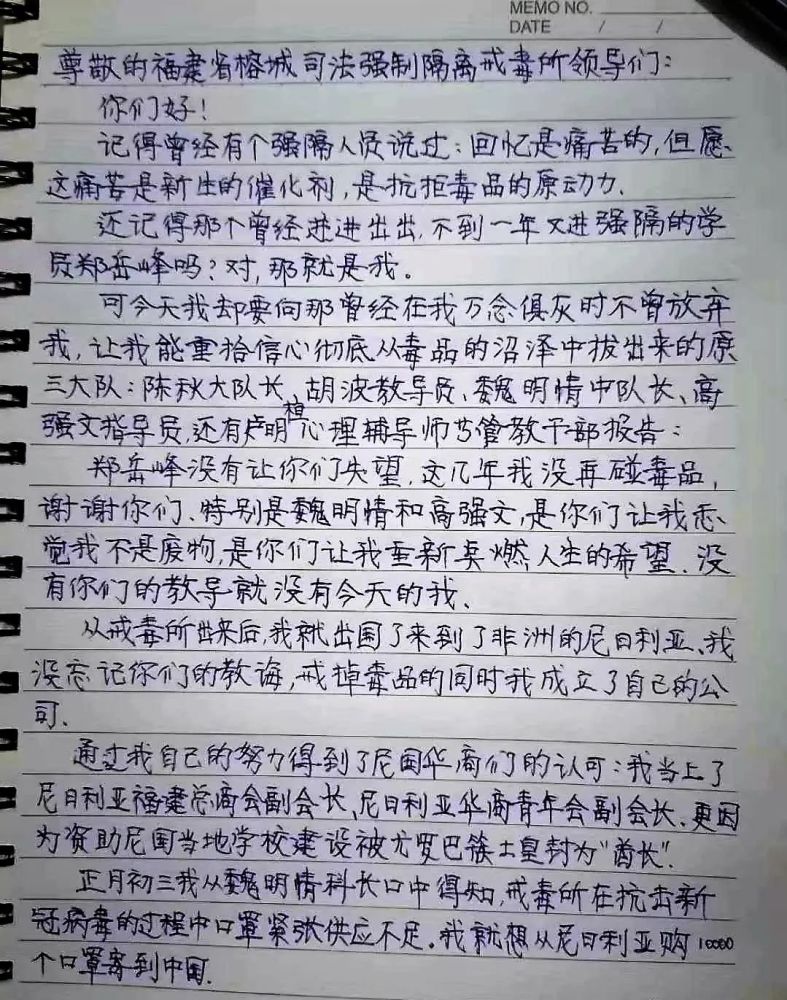 MEMO NO.
DATE / /
尊敬的福建省榕城司法强制隔离戒毒所领导们:
你们好!
记得曾经有个强隔人员说过:回忆是痛苦的,但愿
这痛苦是新生的催化剂,是抗拒毒品的原动力.
还记得那个曾经进进出出,不到一年又进强隔的学
员郑岳峰吗?对,那就是我。
可今天我却要向那曾经在我万念俱灰时不曾放弃
我,让我能重拾信心彻底从毒品的沼泽中拔出来的原
三大队:陈秋大队长、胡波教导员、魏明情中队长、高
强文指导员,还有卢明植心理辅导师等管教干部报告:
郑岳峰没有让你们失望,这几年我没再碰毒品,
谢谢你们、特别是魏明情和高强文,是你们让我感
觉我不是废物,是你们让我重新点燃人生的希望、没
有你们的教导就没有今天的我、
从戒毒所出来后,我就出国了来到了非洲的尼日利亚、我
没忘记你们的教诲,戒掉毒品的同时我成立了自己的公
司.
通过我自己的努力得到了尼国华商们的认可:我当上了
尼日利亚福建总商会副会长、尼日利亚华商青年会副会长、更因
为资助尼国当地学校建设被尤罗巴族土皇封为"酋长".
正月初三我从魏明情科长口中得知,戒毒所在抗击新
冠病毒的过程中口罩紧张供应不足。我就想从尼日利亚购10000
个口罩寄到中国.